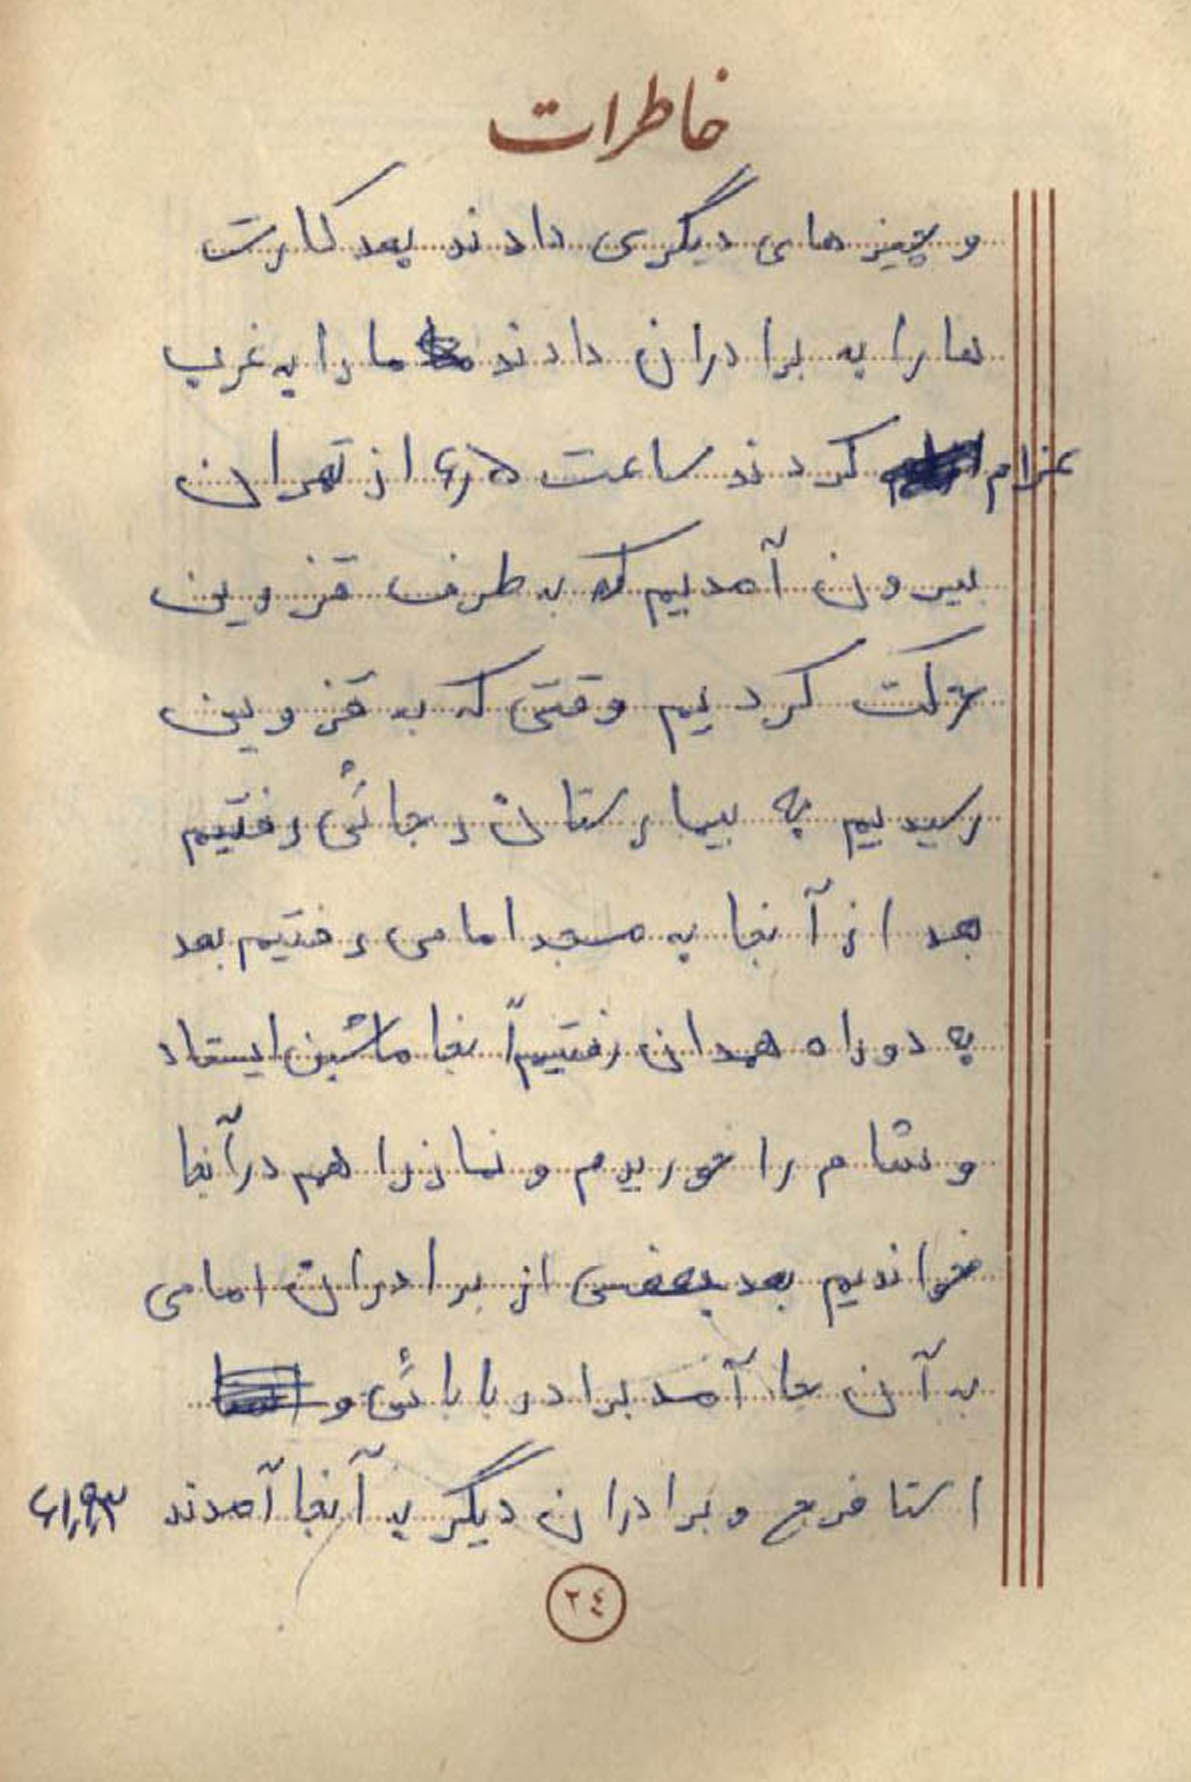 خاطرات
و چیز های دیگری دادند بعد کارت
ها را به برادران دادند ما را به غرب
عزام کردند ساعت ۶٫۵ از تهران
بیرون آمدیم که به طرف قزوین
حرکت کردیم وقتی که به قزوین
رسیدیم به بیمارستان رجائی رفتیم
بعد از آنجا به مسجد امامی رفتیم بعد
به دوراه همدان رفتیم آنجا ماشین ایستاد
و شام را خوریدم و نماز را هم در آنجا
خواندیم بعد بعضی از برادران امامی
به آن جا آمد برادر بابائی و
استا فرج و برادران دیگر به آنجا آمدند
۲٤